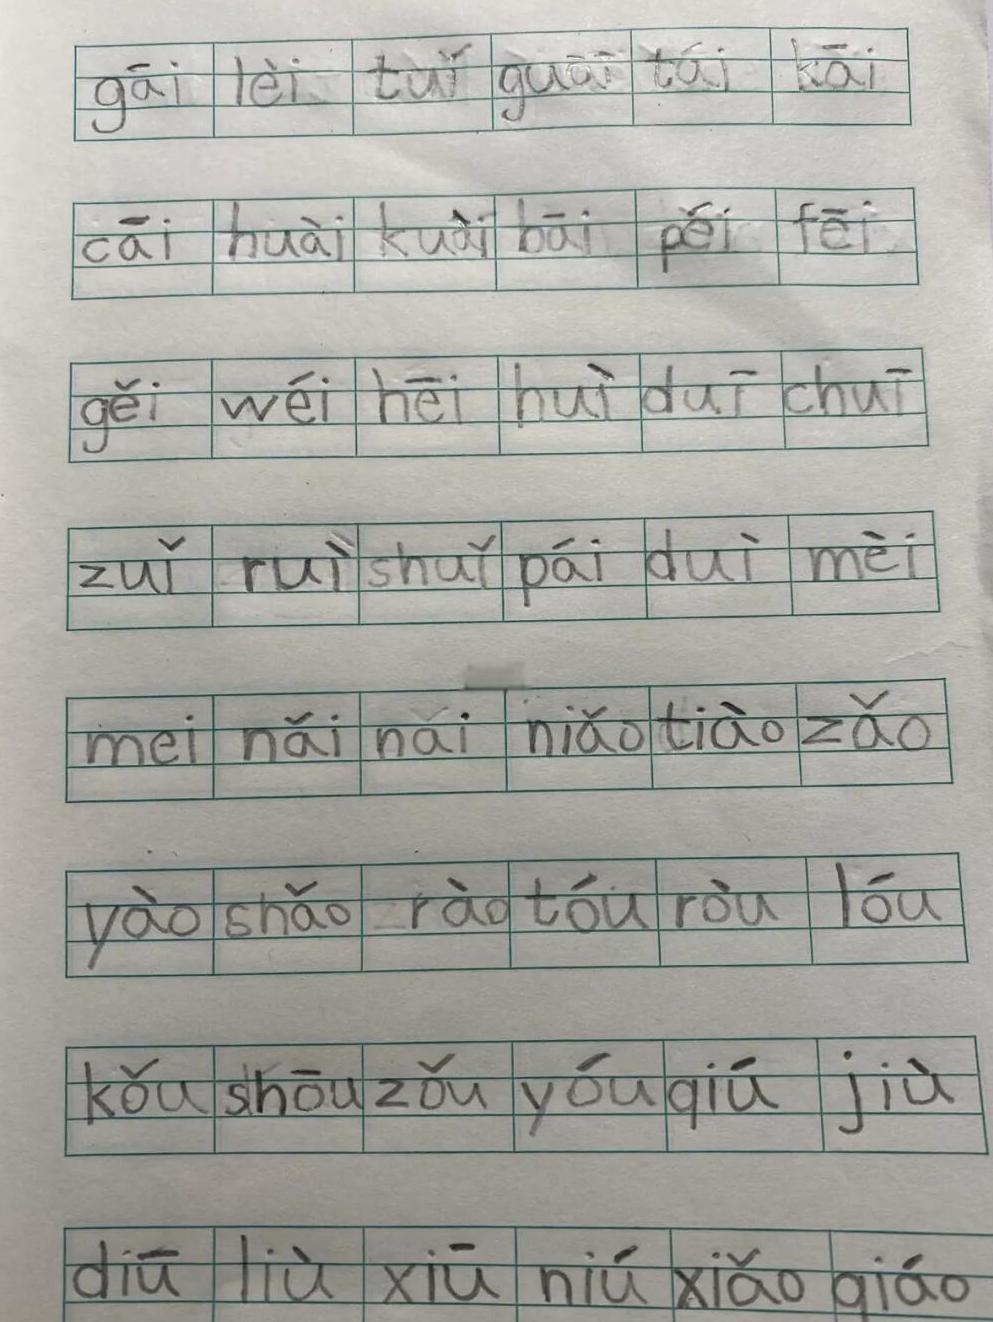 gāi lèi tuǐ guāi tái kāi
cāi huài kuài bāi pěi fēi
gěi wéi hēi huì duī chuī
zuǐ ruì shuǐ pái duì mèi
mei nǎi nai niǎo tiào zǎo
yào shǎo rào tóu ròu lóu
kǒu shōu zǒu yóu qiú jiù
diū liù xiū niú xiǎo qiáo